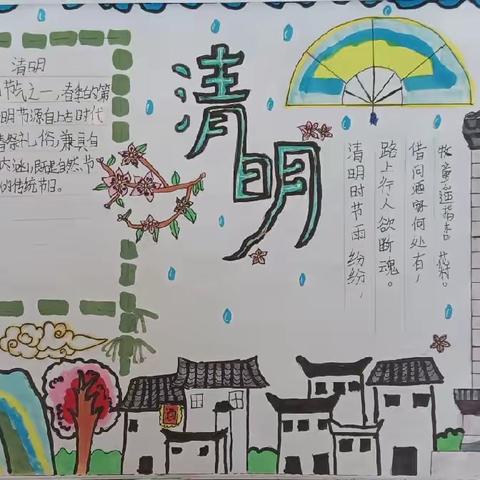 清明
节气之一,春季的第
明节源自上古时代
春祭礼俗,兼具自
内涵,既是自然节
的传统节日。
清明
清明时节雨纷纷,
路上行人欲断魂。
借问酒家何处有,
牧童遥指杏花村。